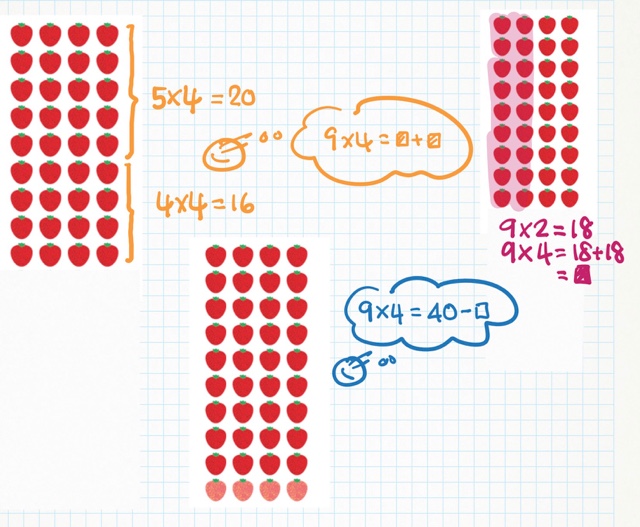 5×4=20
9×4=□+□
4×4=16
9×2=18
9×4=18+18
=□
9×4=40-□